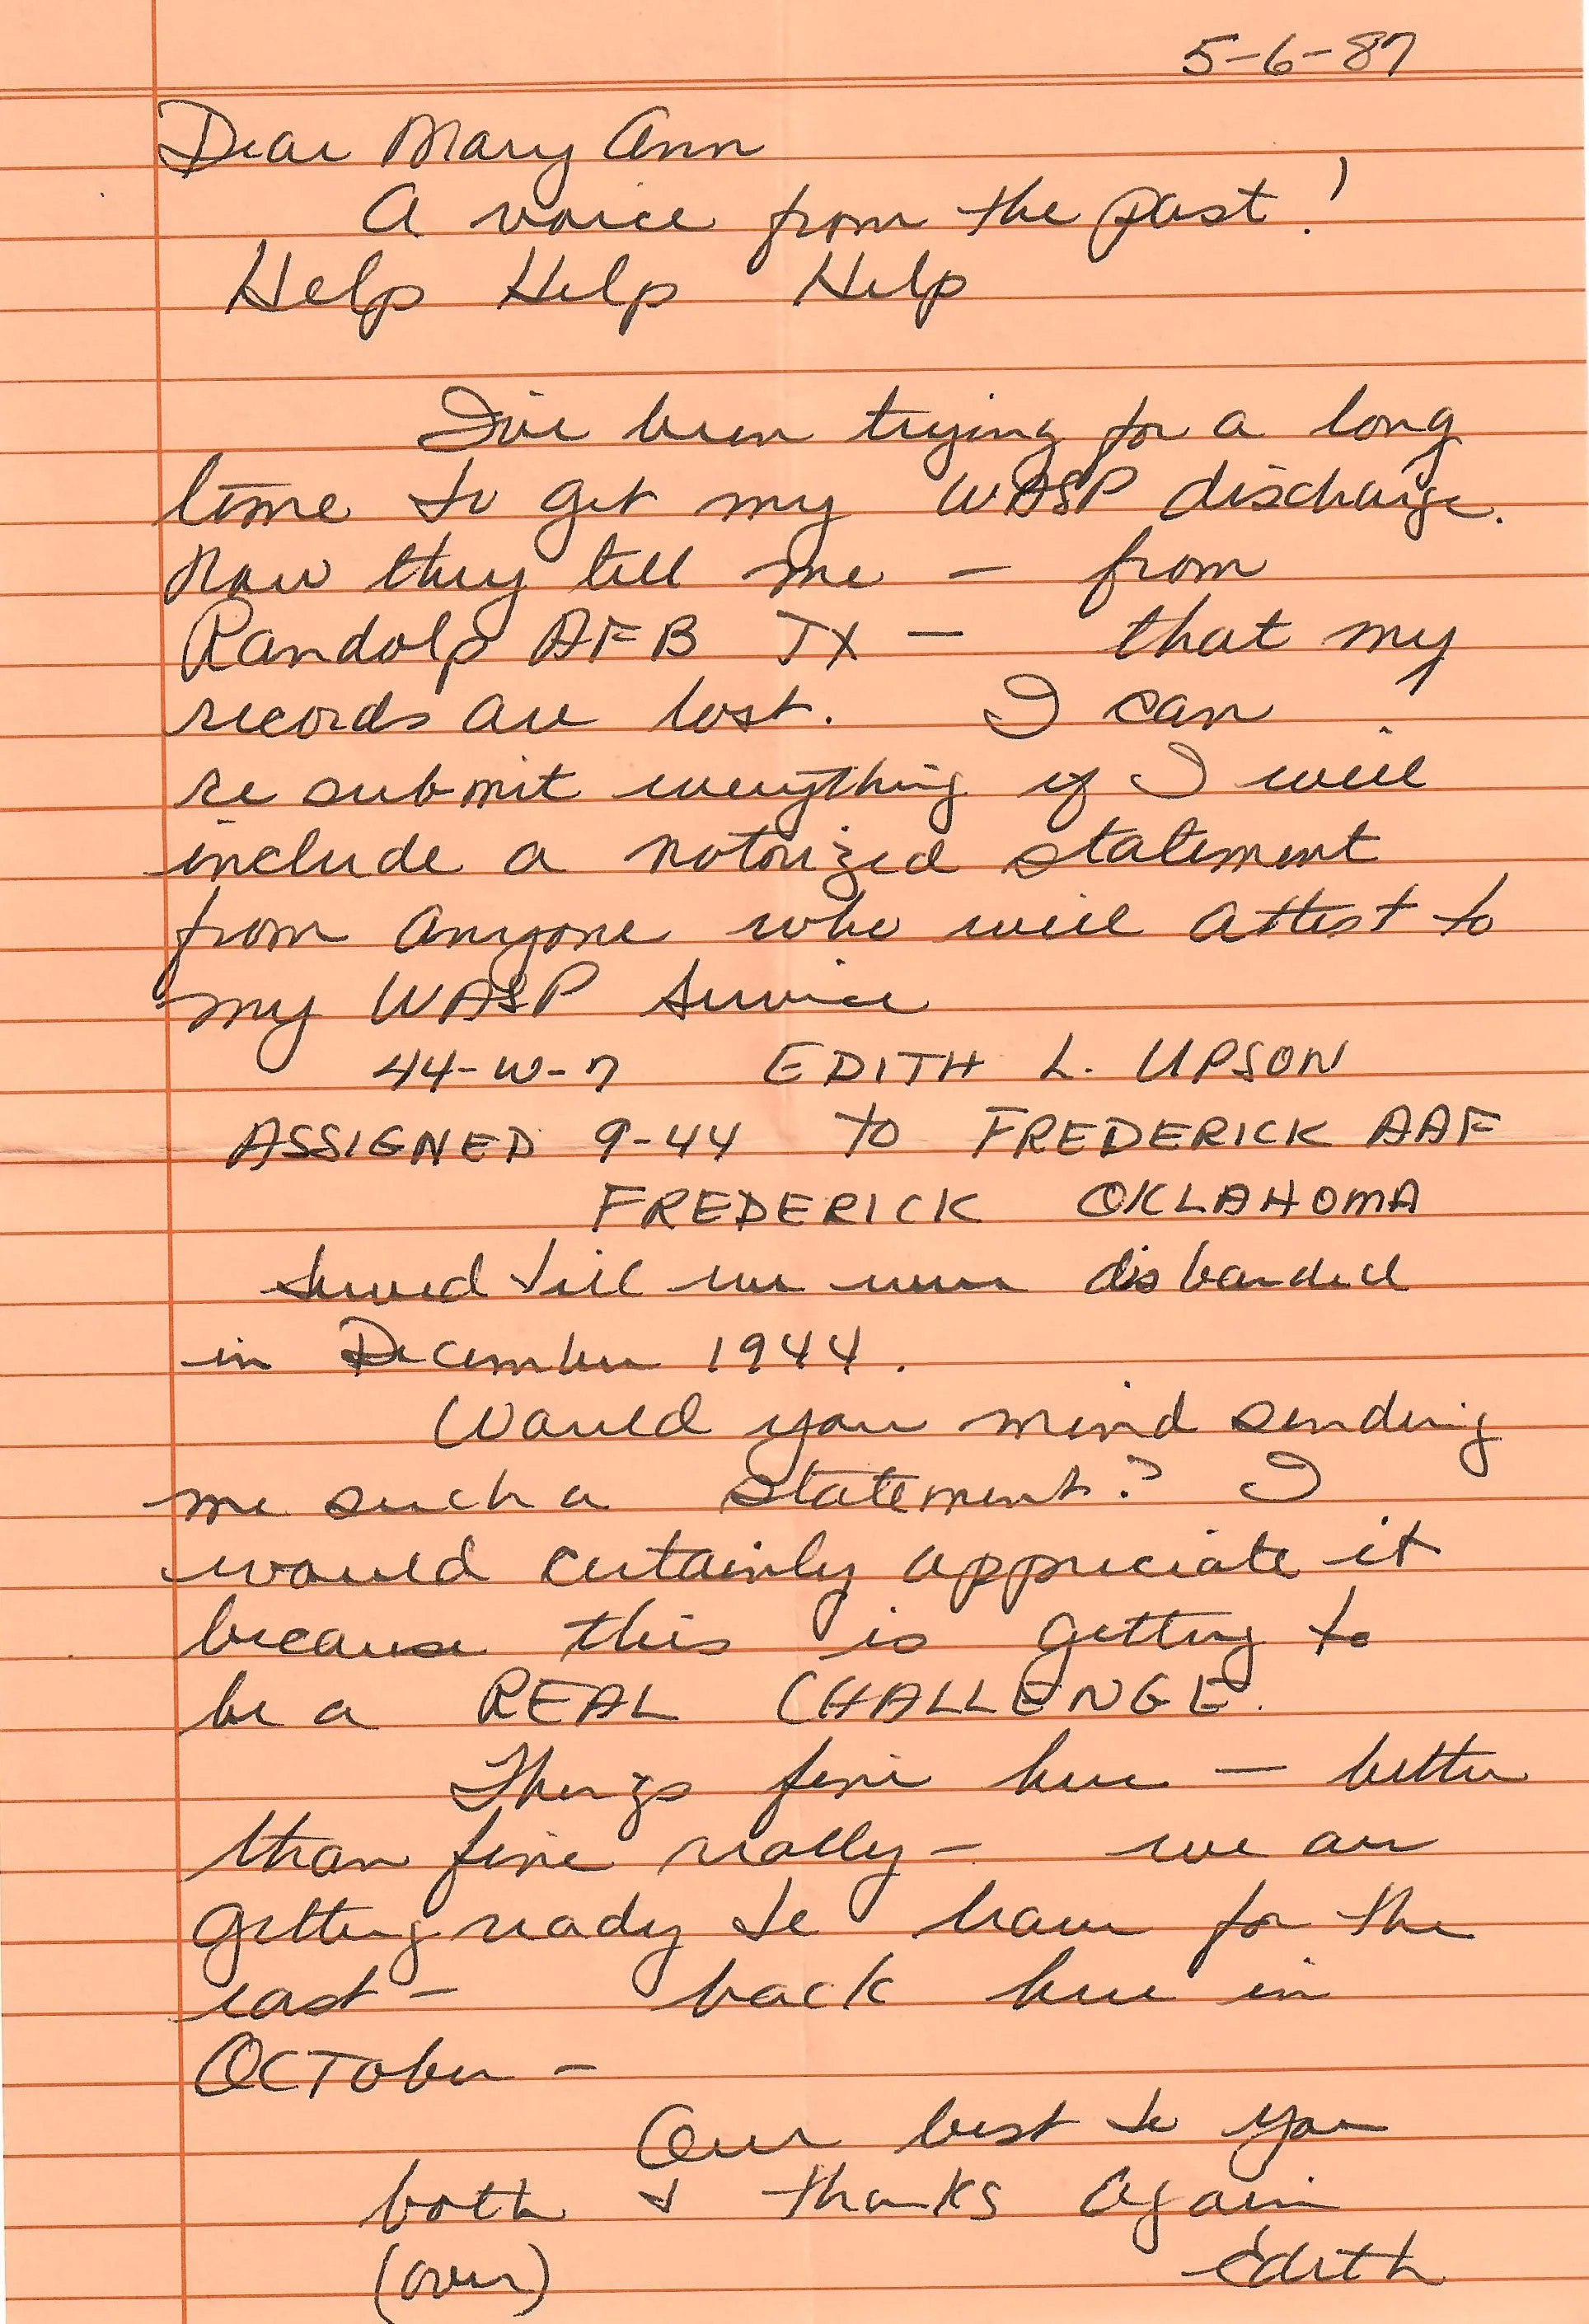 5-6-87
Dear Mary Ann
A voice from the past!
Help Help Help
I've been trying for a long
time to get my WASP discharge.
Now they tell me — from
Randolp AFB TX — that my
records are lost. I can
re submit everything if I will
include a notorized statement
from anyone who will attest to
my WASP service
44-W-7 EDITH L. UPSON
ASSIGNED 9-44 TO FREDERICK AAF
FREDERICK OKLAHOMA
served till we were disbanded
in December 1944.
Would you mind sending
me such a statement? I
would certainly appreciate it
because this is getting to
be a REAL CHALLENGE.
Things fine here — better
than fine really — we are
getting ready to leave for the
east — back here in
October —
Our best to you
both & thanks again
(over) Edith